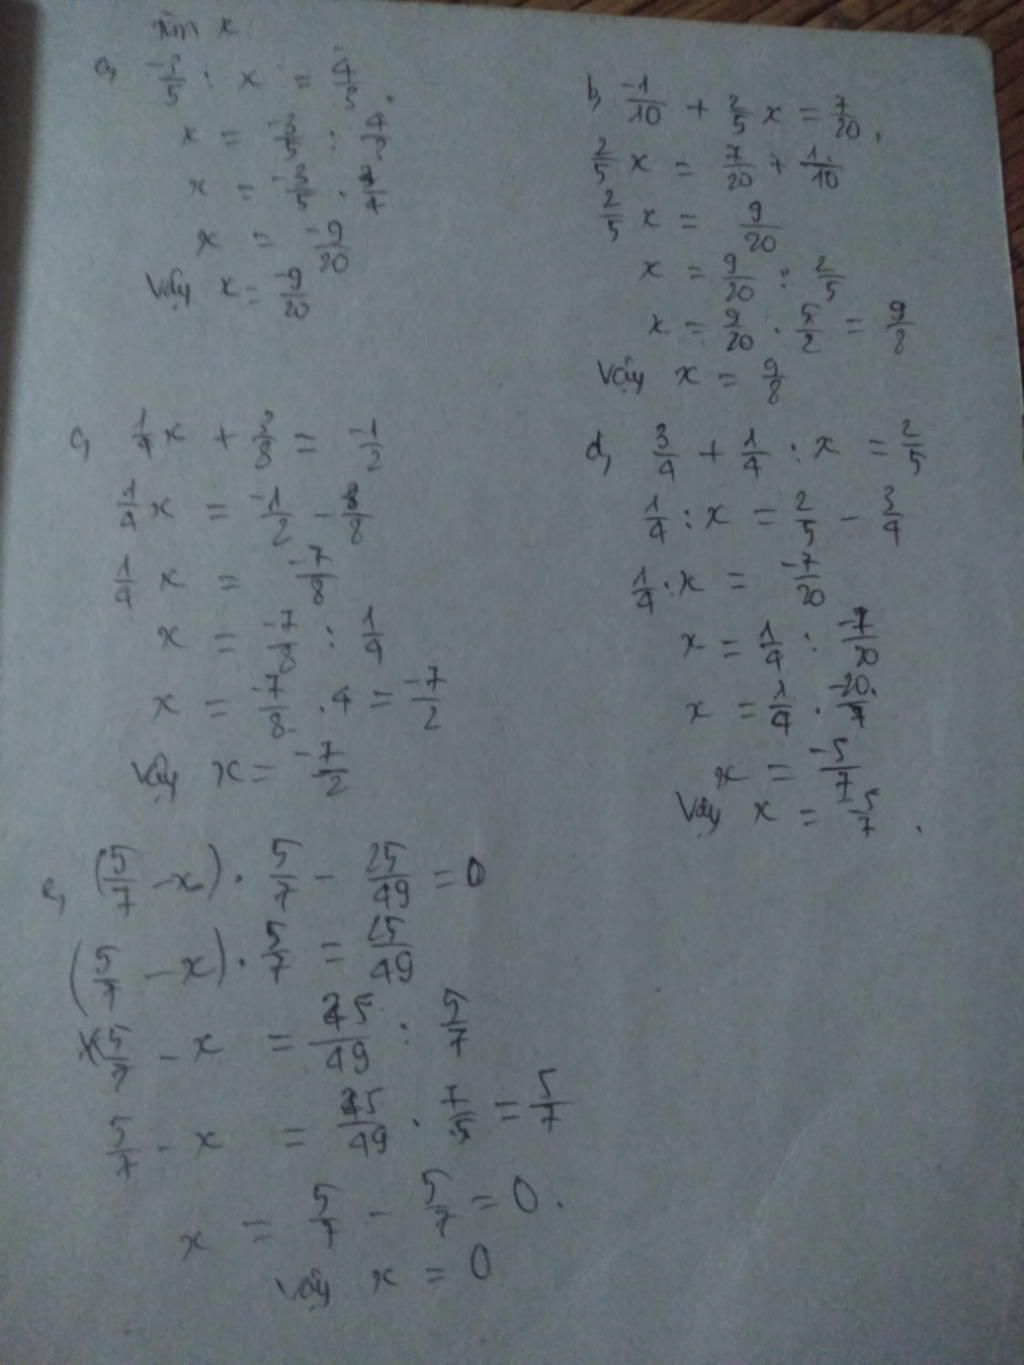 Tìm x
a, -3/5 : x = 4/3.
x = -3/5 : 4/3
x = -3/5 . 3/4
x = -9/20
Vậy x = -9/20
b, -1/10 + 2/5 x = 7/20.
2/5 x = 7/20 + 1/10
2/5 x = 9/20
x = 9/20 : 2/5
x = 9/20 . 5/2 = 9/8
Vậy x = 9/8
c, 1/4 x + 3/8 = -1/2
1/4 x = -1/2 - 3/8
1/4 x = -7/8
x = -7/8 : 1/4
x = -7/8 . 4 = -7/2
Vậy x = -7/2
d, 3/4 + 1/4 : x = 2/5
1/4 : x = 2/5 - 3/4
1/4 : x = -7/20
x = 1/4 : -7/20
x = 1/4 . -20/7
x = -5/7
Vậy x = -5/7.
e, (5/7 - x) . 5/7 - 25/49 = 0
(5/7 - x) . 5/7 = 25/49
5/7 - x = 25/49 : 5/7
5/7 - x = 25/49 . 7/5 = 5/7
x = 5/7 - 5/7 = 0.
Vậy x = 0